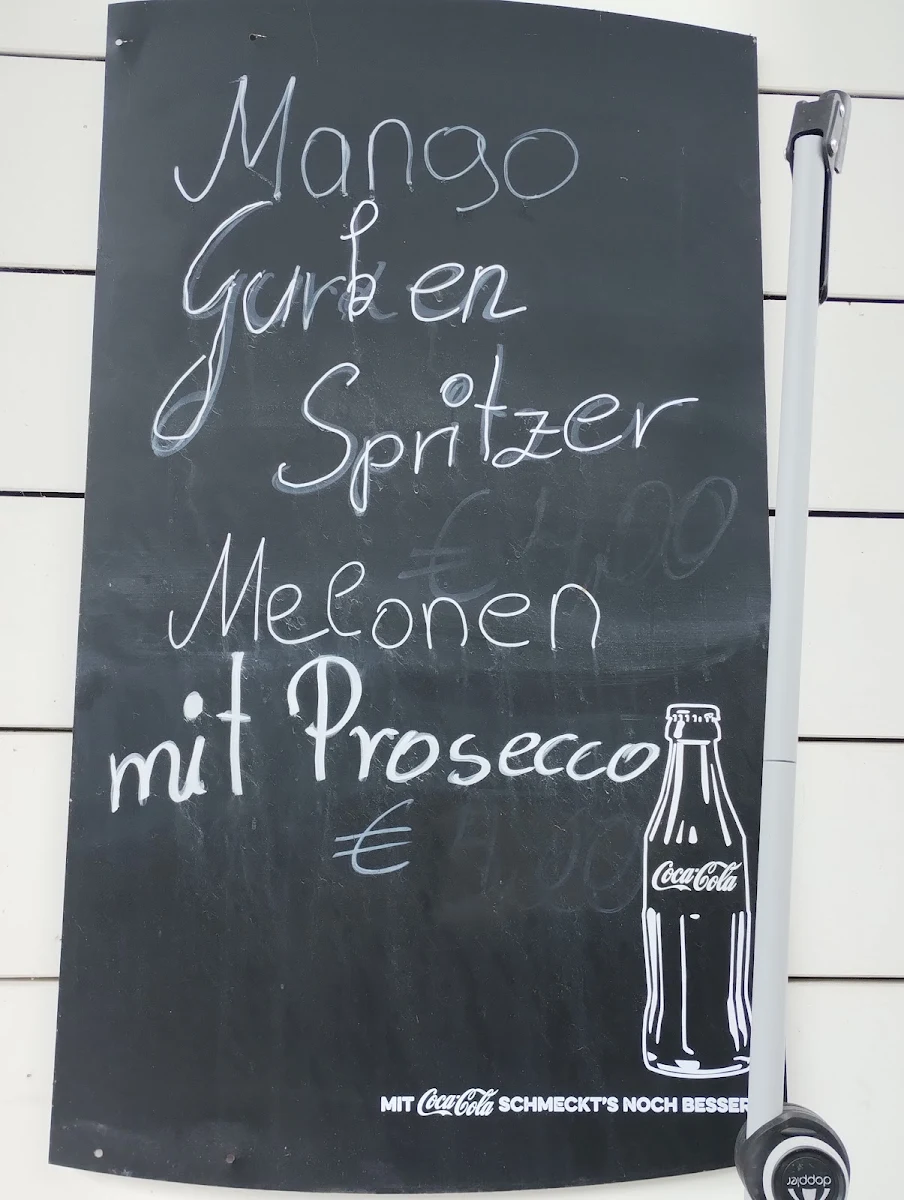 Mango
Gurken
Spritzer
€ 4,00
Melonen
mit Prosecco
€
Coca-Cola
MIT Coca-Cola SCHMECKT'S NOCH BESSER
doppler